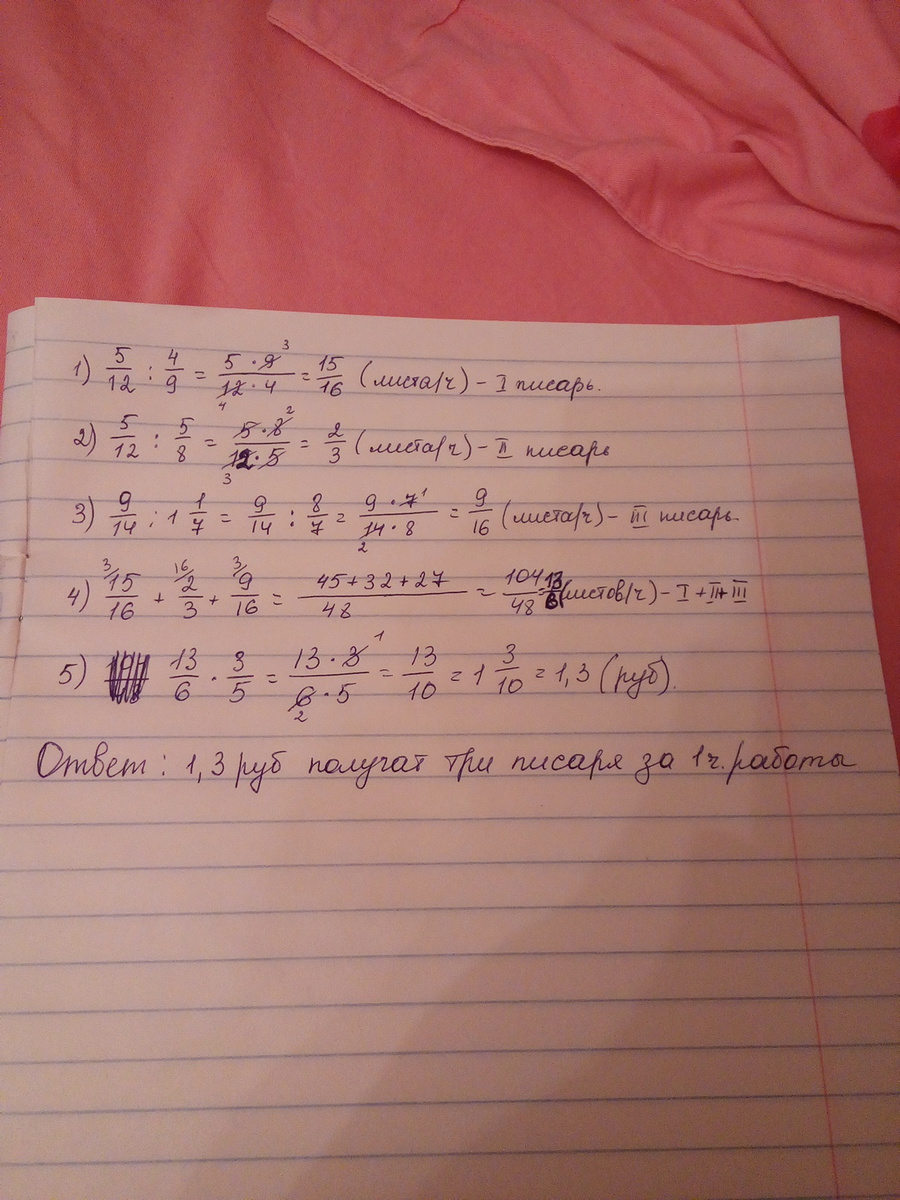 1) 5/12 : 4/9 = 5·9 3/12 4·4 = 15/16 (листа/ч) - I писарь.
2) 5/12 : 5/8 = 5·8 2/12 3·5 = 2/3 (листа/ч) - II писарь
3) 9/14 : 1 1/7 = 9/14 : 8/7 = 9·7 1/14 2·8 = 9/16 (листа/ч) - III писарь.
4) 3/ 15/16 + 16/ 2/3 + 3/ 9/16 = 45+32+27/48 = 104/48 = 13/6 (листов/ч) - I + II + III
5) 13/6 · 3/5 = 13·3 1/6 2·5 = 13/10 = 1 3/10 = 1,3 (руб).
Ответ: 1,3 руб получат три писаря за 1 ч. работы